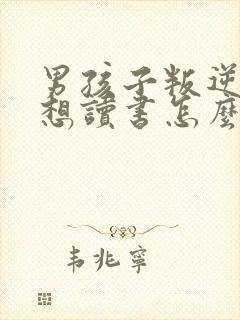 男孩子叛逆
想讀書怎麼
韦兆寧